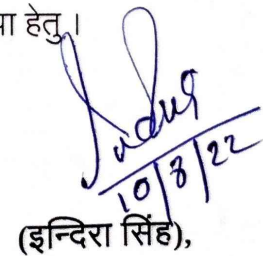 हेतु।
10/8/22
(इन्दिरा सिंह),